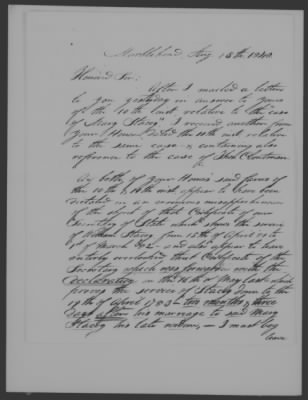 Marblehead, Aug 15th 1840.
Honored Sir:
After I mailed a letter
to you yesterday in answer to yours
of the 10th inst relative to the case
of Mary Stacy, I received another from
your Honor dated the 11th inst relative
to the same case & containing also
reference to the case of
As both of your Honor's said favors of
the 10th & 11th inst appear to have been
dictated in an erroneous misapprehension
of the object of that Certificate of our
Secretary of State which shows the service
of William Stacy from 15th of April to
1st of March 1782 and also appear to have
entirely overlooked that Certificate of the
Secretary which was forwarded with the
declaration on the 16th of May last which
proves the service of Stacy down to the
19th of April 1783 two months & three
days after his marriage to said Mary
Stacy his late widow, I must beg
leave